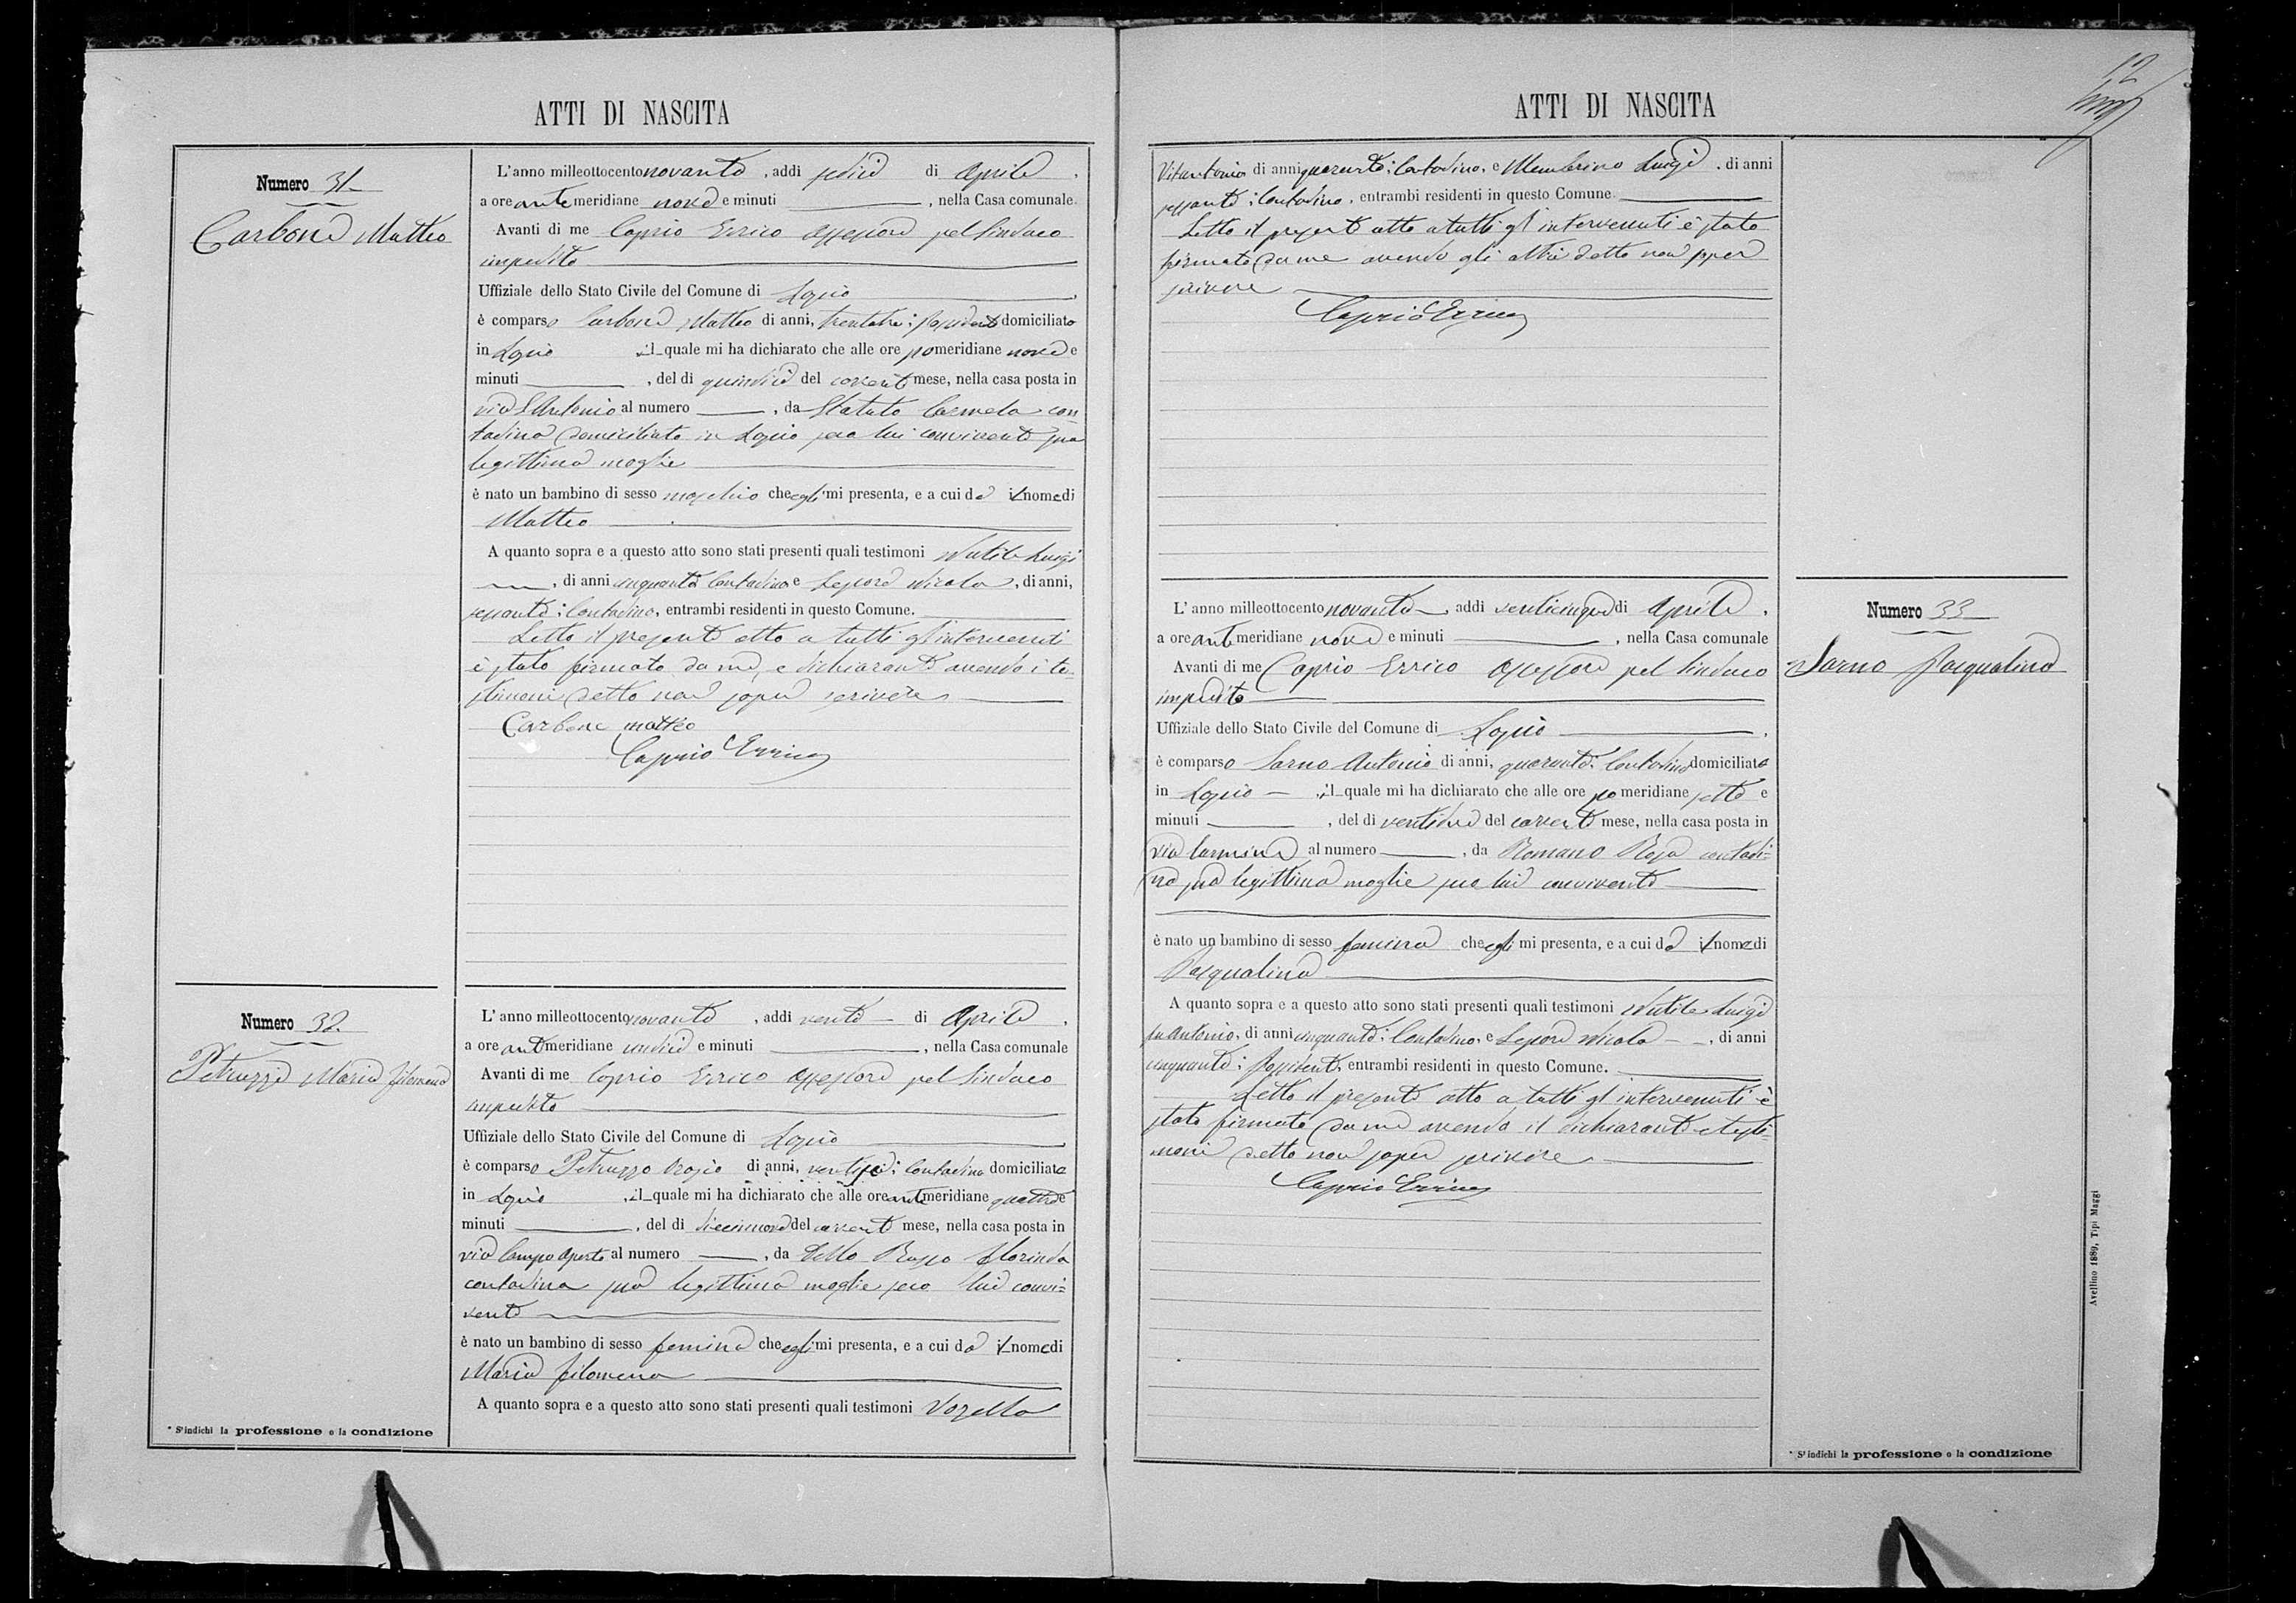 ATTI DI NASCITA
Numero 31
Carbone Matteo
L'anno milleottocento novanta, addì sedici di Aprile,
a ore antemeridiane nove e minuti, nella Casa comunale.
Avanti di me Caprio Errico Assessore pel Sindaco
impedito
Uffiziale dello Stato Civile del Comune di Lapio
è comparso Carbone Matteo di anni, trentatre; possidente domiciliato
in Lapio il quale mi ha dichiarato che alle ore pomeridiane nove e
minuti, del dì quindici del corrente mese, nella casa posta in
via S. Antonio al numero, da Statuto Carmela con
tadina domiciliata in Lapio seco lui convivente sua
legittima moglie
è nato un bambino di sesso maschio che egli mi presenta, e a cui dà il nome di
Matteo
A quanto sopra e a questo atto sono stati presenti quali testimoni Nutile Luigi
, di anni cinquanta Contadino e Lepore Nicola, di anni,
sessanta; Contadino, entrambi residenti in questo Comune.
Letto il presente atto a tutti gl'intervenuti
è stato firmato da me, e dichiarante avendo i te-
stimoni detto non saper scrivere
Carbone matteo
Caprio Errico
Numero 32
Petruzzo Maria filomena
L'anno milleottocento novanta, addì venti di Aprile,
a ore antmeridiane undici e minuti, nella Casa comunale
Avanti di me Caprio Errico Assessore pel Sindaco
impedito
Uffiziale dello Stato Civile del Comune di Lapio
è comparso Petruzzo Orazio di anni, ventisei; Contadino domiciliato
in Lapio, il quale mi ha dichiarato che alle ore antmeridiane quattro e
minuti, del dì diecinove del corrente mese, nella casa posta in
via Campo Aperto al numero, da Dello Russo Florinda
contadina sua legittima moglie seco lui convi=
vente
è nato un bambino di sesso femina che egli mi presenta, e a cui dà il nome di
Maria filomena
A quanto sopra e a questo atto sono stati presenti quali testimoni
* S'indichi la professione o la condizione
ATTI DI NASCITA
12
Vitantonio di anni quaranta; Contadino, e Membrino Luigi, di anni
sessanta; Contadino, entrambi residenti in questo Comune.
Letto il presente atto a tutti gl'intervenuti è stato
firmato da me avendo gli altri detto non saper
scrivere
Caprio Errico
L'anno milleottocento novanta, addì venticinque di Aprile,
a ore antmeridiane nove e minuti, nella Casa comunale
Avanti di me Caprio Errico Assessore pel Sindaco
impedito
Uffiziale dello Stato Civile del Comune di Lapio
è comparso Sarno Antonio di anni, quaranta; Contadino domiciliato
in Lapio, il quale mi ha dichiarato che alle ore pomeridiane sette e
minuti, del dì ventidue del corrente mese, nella casa posta in
via Carmine al numero, da Romano Rosa contadi=
na sua legittima moglie seco lui convivente
è nato un bambino di sesso femina che egli mi presenta, e a cui dà il nome di
Pasqualina
A quanto sopra e a questo atto sono stati presenti quali testimoni Nutile Luigi
fu Antonio, di anni cinquanta; Contadino, e Lepore Nicola, di anni
cinquanta; Possidente, entrambi residenti in questo Comune.
Letto il presente atto a tutti gl'intervenuti è
stato firmato da me avendo il dichiarante e testi-
moni detto non saper scrivere
Caprio Errico
Numero 33
Sarno Pasqualina
* S'indichi la professione o la condizione
Avellino 1889, Tipi Maggi